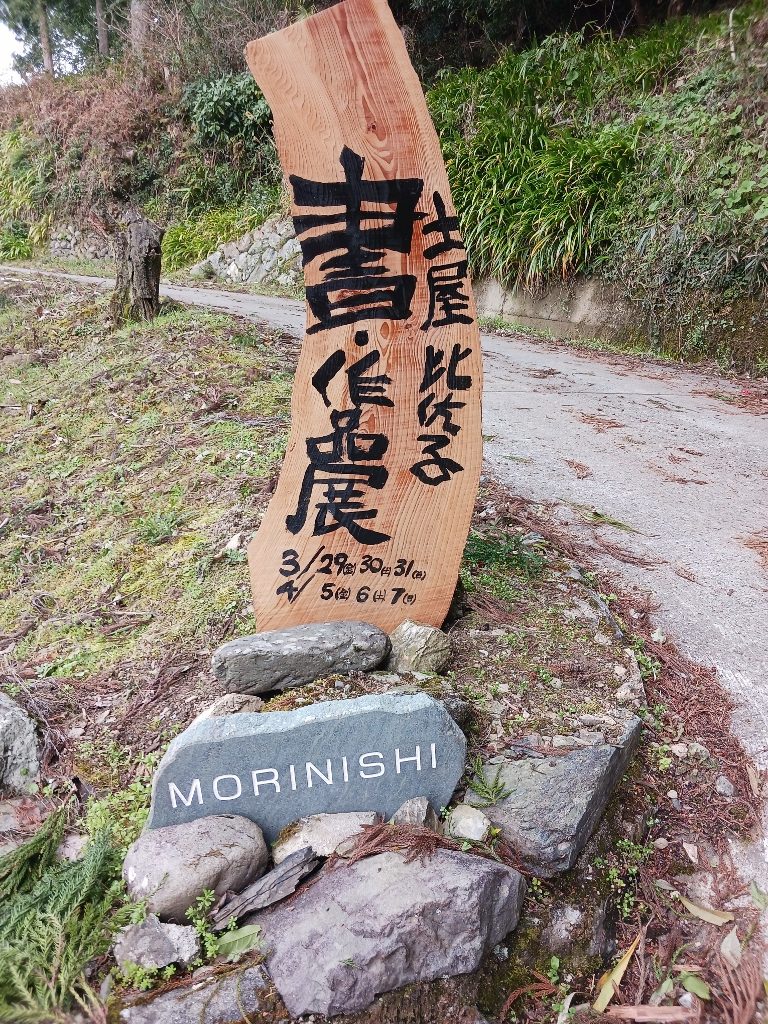 土屋比佐子
書・作品展
3/29(金)30(土)31(日)
4/5(金)6(土)7(日)
MORINISHI